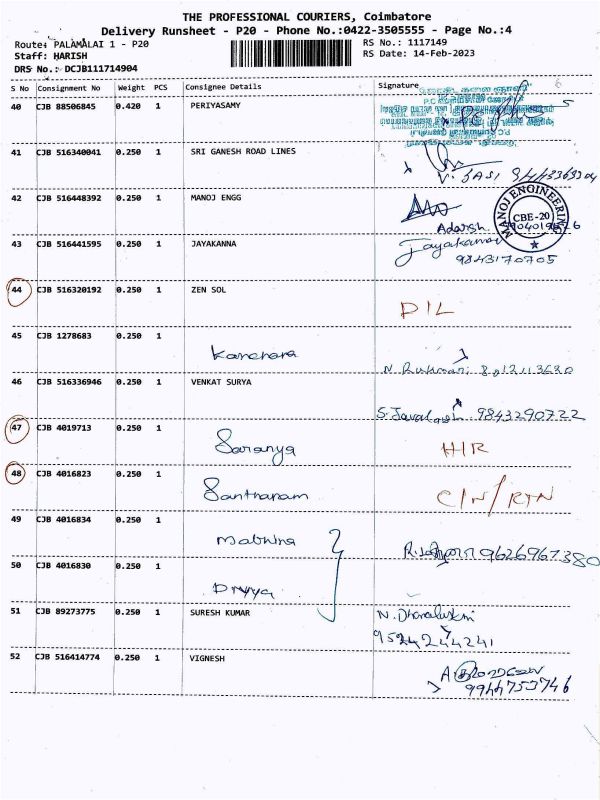 THE PROFESSIONAL COURIERS, Coimbatore
Delivery Runsheet - P20 - Phone No.:0422-3505555 - Page No.:4
Route: PALAMALAI 1 - P20
RS No.: 1117149
Staff: HARISH
RS Date: 14-Feb-2023
DRS No.: DCJB111714904
S No Consignment No Weight PCS Consignee Details Signature
40 CJB 88506845 0.420 1 PERIYASAMY
41 CJB 516340041 0.250 1 SRI GANESH ROAD LINES
V. SASI 9443369304
42 CJB 516448392 0.250 1 MANOJ ENGG
MANOJ ENGINEERING CBE-20
Adarsh
43 CJB 516441595 0.250 1 JAYAKANNA
Jayakannan
9843170705
44 CJB 516320192 0.250 1 ZEN SOL
D/L
45 CJB 1278683 0.250 1
Kanchana
N. Rukmani
46 CJB 516336946 0.250 1 VENKAT SURYA
9843290722
47 CJB 4019713 0.250 1
Saranya H/R
48 CJB 4016823 0.250 1
Santharam C/N/RTN
49 CJB 4016834 0.250 1
9626967380
50 CJB 4016830 0.250 1
Divya
51 CJB 89273775 0.250 1 SURESH KUMAR N. Dhanalakshmi
9524244241
52 CJB 516414774 0.250 1 VIGNESH
9944753746